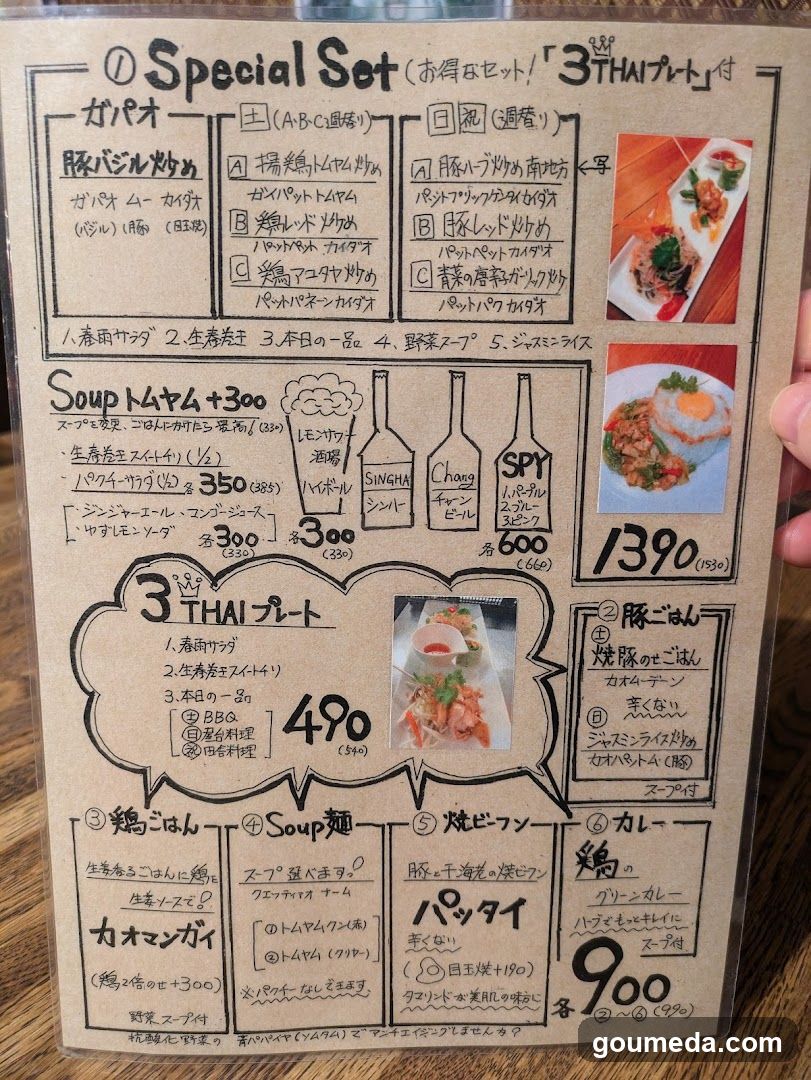 ① Special Set (お得なセット!「3THAIプレート」付
ガパオ
豚バジル炒め
ガパオ ムー カイダオ
(バジル)(豚) (目玉焼)
土 (A・B・C週替り)
A 揚鶏トムヤム炒め
ガイパット トムヤム
B 鶏レッド炒め
パットペット カイダオ
C 鶏アユタヤ炒め
パットパネーン カイダオ
日 祝 (週替り)
A 豚ハーブ炒め 南地方
パットプリックゲンタイカイダオ
B 豚レッド炒め
パットペット カイダオ
C 青菜の唐辛子ガーリック炒
パットパク カイダオ
←写
1、春雨サラダ 2、生春巻王 3、本日の一品 4、野菜スープ 5、ジャスミンライス
1390(1530)
Soup トムヤム +300
スープを変更、ごはんにかけたら最高!(330)
・生春巻王スイートチリ(1/2)
・パクチーサラダ(1/2) 各350(385)
・ジンジャーエール・マンゴージュース
・ゆずレモンソーダ
各300
(330)
レモンサワー
酒場
ハイボール
各300
(330)
SINGHA
シンハー
Chang
チャーン
ビール
SPY
1.パープル
2.ブルー
3.ピンク
各600
(660)
3 THAI プレート
1、春雨サラダ
2、生春巻王スイートチリ
3、本日の一品
土 BBQ
日 屋台料理
祝 田舎料理
490
(540)
② 豚ごはん
土
焼豚のせごはん
カオムーデーン
辛くない
日
ジャスミンライス炒め
カオパットム(豚)
スープ付
③ 鶏ごはん
生姜香るごはんに鶏を
生姜ソースで!
カオマンガイ
(鶏2倍のせ+300)
野菜スープ付
④ Soup麺
スープ選べますっ!
クエッティアオ ナーム
①トムヤムクン(赤)
②トムヤム(クリヤー)
※パクチーなしで王ます。
⑤ 焼ビーフン
豚と干海老の焼ビーフン
パッタイ
辛くない
(目玉焼+190)
タマリンドが美肌の味方に
⑥ カレー
鶏の
グリーンカレー
ハーブでもっとキレイに
スープ付
各900
②〜⑥(990)
抗酸化野菜の 青パパイヤ(ソムタム)でアンチエイジングしませんか?
goumeda.com